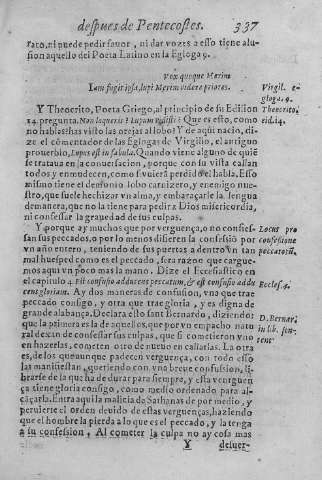 despues de Pentecostes. 337
rato, ni puede pedir fauor, ni dar vozes a esso tiene alu-
sion aquello del Poeta Latino en la Egloga 9.
Vox quoque Mœrim
Iam fugit ipsa, lupi Mœrim videre priores.
Virgil. e-
gloga. 9.
Y Theocrito, Poeta Griego, al principio de su Edilion
14. pregunta. Non loqueris? Lupum vidisti? Que es esto, como
no hablas? has visto las orejas al lobo? Y de aqui nacio, di-
ze el cõmentador de las Eglogas de Virgilio, el antiguo
prouerbio, Lupus est in fabula. Quando viene alguno de quiẽ
se trataua en la conuersacion, porque con su vista callan
todos y enmudecen, como si vuierã perdido el habla. Esso
mismo tiene el demonio lobo carnizero, y enemigo nue-
stro, que suele hechizar vn alma, y embaraçarle la lengua
de manera, que no la tiene para pedir a Dios misericordia,
ni confessar la grauedad de sus culpas.
Theocrito,
eid. 14.
Y porque ay muchos que por verguença, o no confies-
san sus peccados, o por lo menos difieren la confessiõ por
vn año entero, teniendo de sus puertas adentro vn tan
mal huesped como es el peccado, sera razon que cargue-
mos aqui vn poco mas la mano. Dize el Ecclesiastico en
el capitulo 4. Est confusio adducens peccatum, & est confusio addu
cens gloriam. Ay dos maneras de confusion, vna que trae
peccado consigo, y otra que trae gloria, y es digna de
grande alabança. Declara esto sant Bernardo, diziendo:
que la primera es la de aquellos, que por vn empacho natu
ral dexan de confessar sus culpas, que si cometieron vno
en hazerlas, cometen otro de nueuo en callarlas. La otra
es, de los que aunque padecen verguença, con todo esso
las manifiestan, queriendo con vna breue confusion, li-
brarse de la que ha de durar para siempre, y esta verguen
ça tiene gloria consigo, como medio ordenado para al-
cãçarla. Entra aqui la malicia de Sathanas de por medio, y
peruierte el orden deuido de estas verguenças, haziendo
que el hombre la pierda a lo que es el peccado, y la tenga
a su confession. Al cometer la culpa no ay cosa mas
Locus pro
confesione
peccatorũ.
Eccles. 4.
D. Bernar.
in lib. sen-
tent
Y desuer-